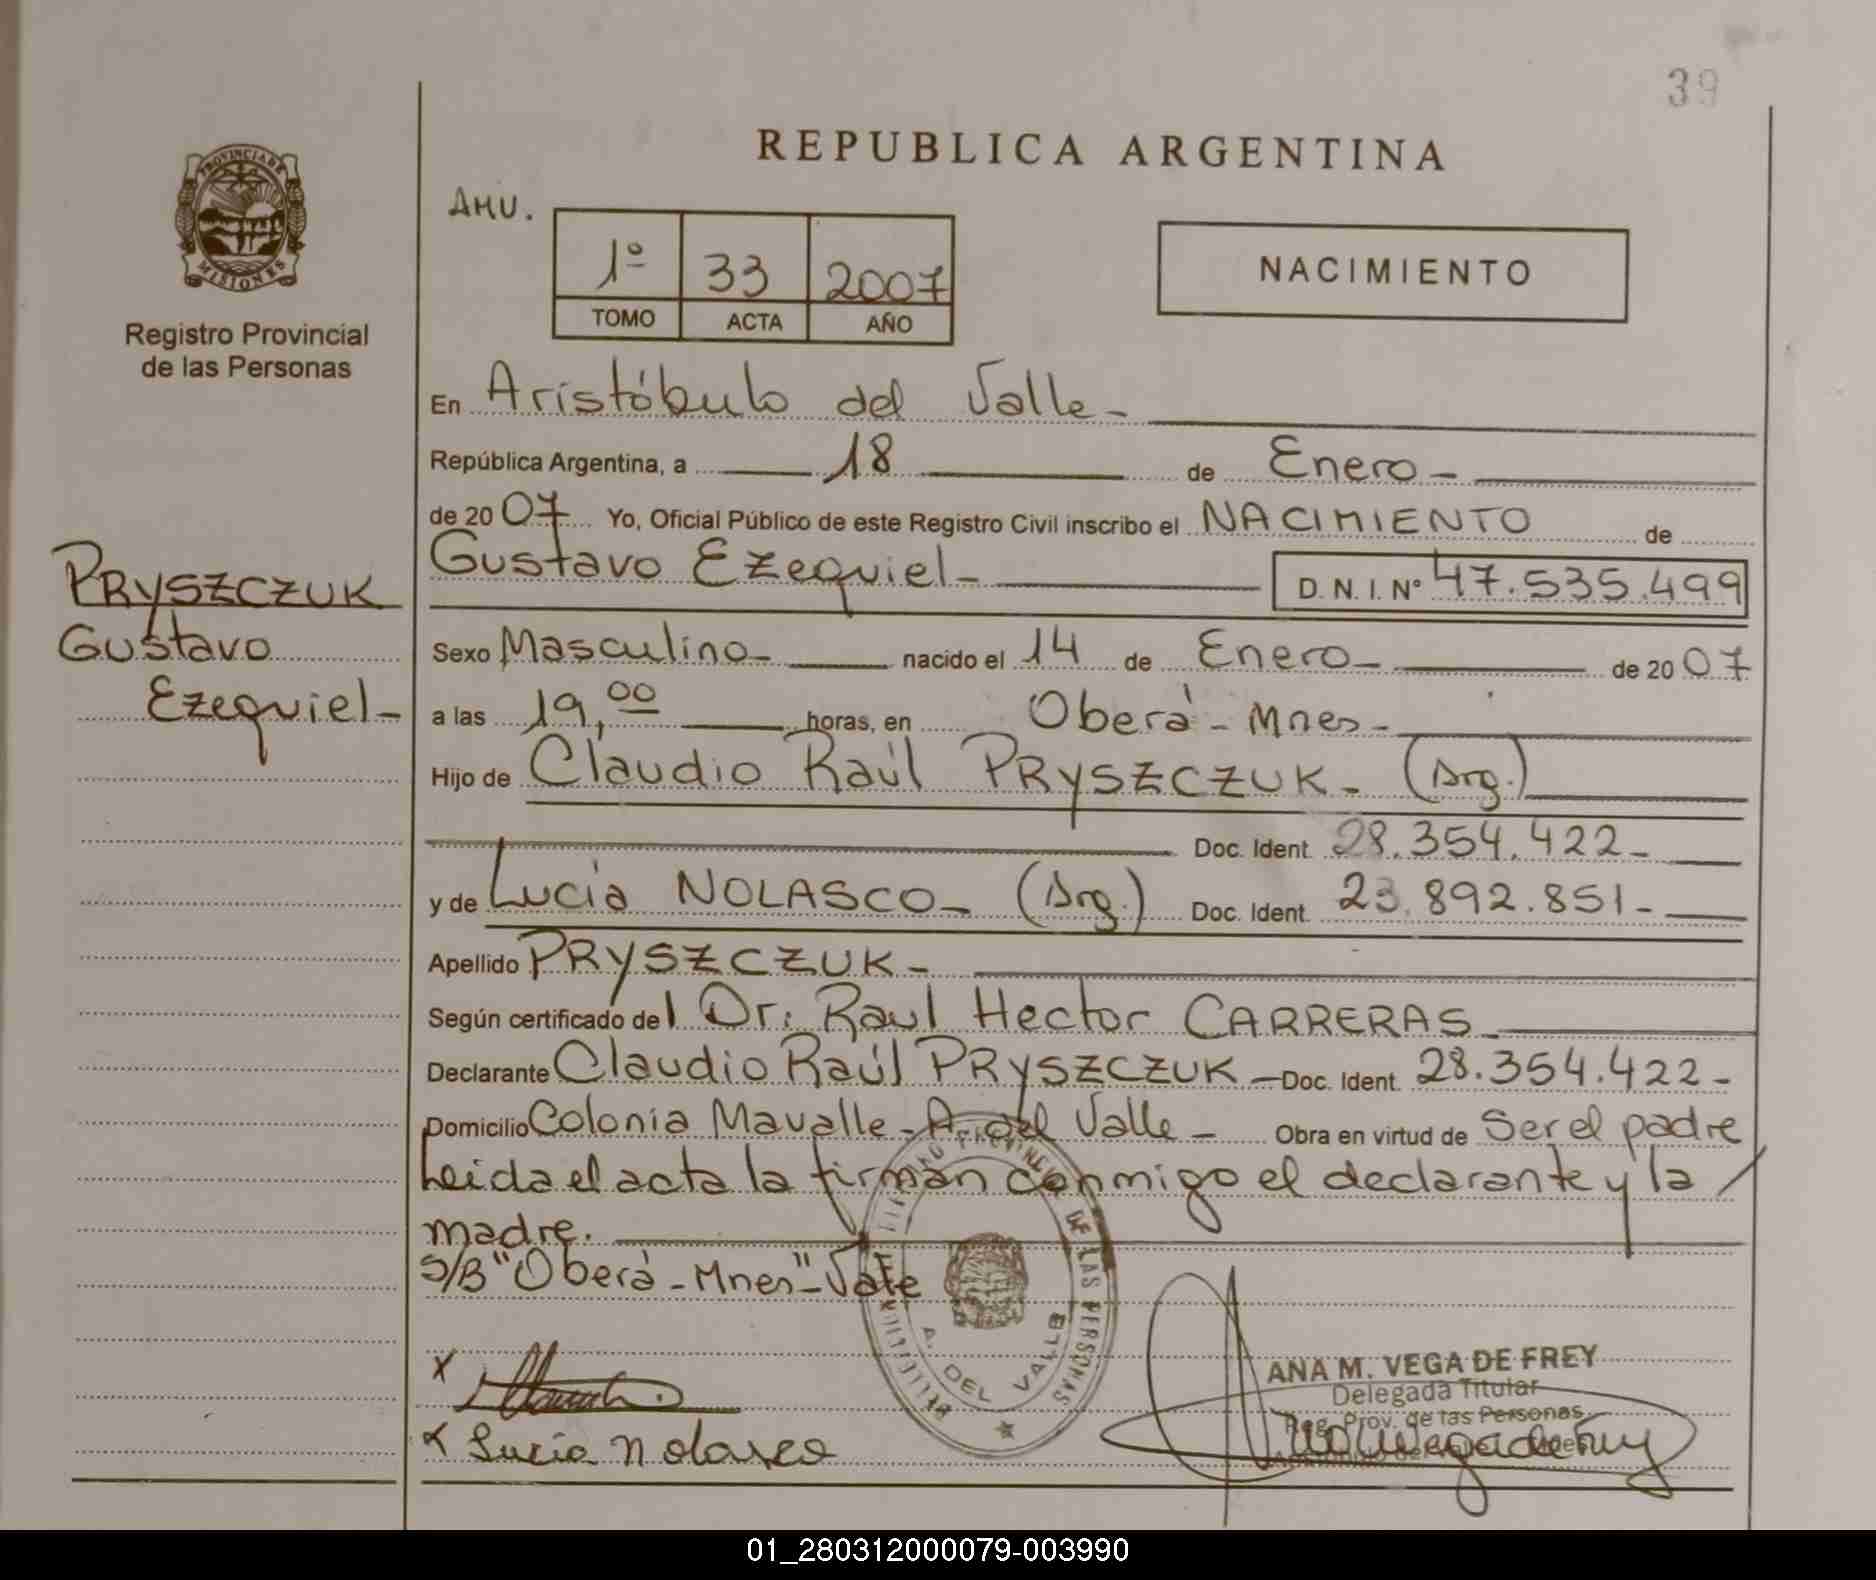 39
REPUBLICA ARGENTINA
PROVINCIA DE
MISIONES
Registro Provincial
de las Personas
AHU.
1º 33 2007
TOMO ACTA AÑO
NACIMIENTO
En Aristóbulo del Valle-
República Argentina, a 18 de Enero-
de 2007 Yo, Oficial Público de este Registro Civil inscribo el NACIMIENTO de
PRYSZCZUK
Gustavo
Ezequiel-
Gustavo Ezequiel- D. N. I. Nº 47.535.499
Sexo Masculino- nacido el 14 de Enero- de 2007
a las 19,00 horas, en Oberá - Mnes-
Hijo de Claudio Raúl PRYSZCZUK- (Arg.)
Doc. Ident. 28.354.422-
y de Lucia NOLASCO- (Arg.) Doc. Ident. 23.892.851-
Apellido PRYSZCZUK-
Según certificado del Dr. Raul Hector CARRERAS-
Declarante Claudio Raúl PRYSZCZUK- Doc. Ident. 28.354.422-
Domicilio Colonia Mavalle- A. del Valle- Obra en virtud de Ser el padre
Leida el acta la firman conmigo el declarante y la /
madre.
S/B "Oberá - Mnes"- Vale
DE LAS PERSONAS
A. DEL VALLE
ANA M. VEGA DE FREY
Delegada Titular
Reg. Prov. de las Personas
x
x Lucia Nolasco
01_280312000079-003990